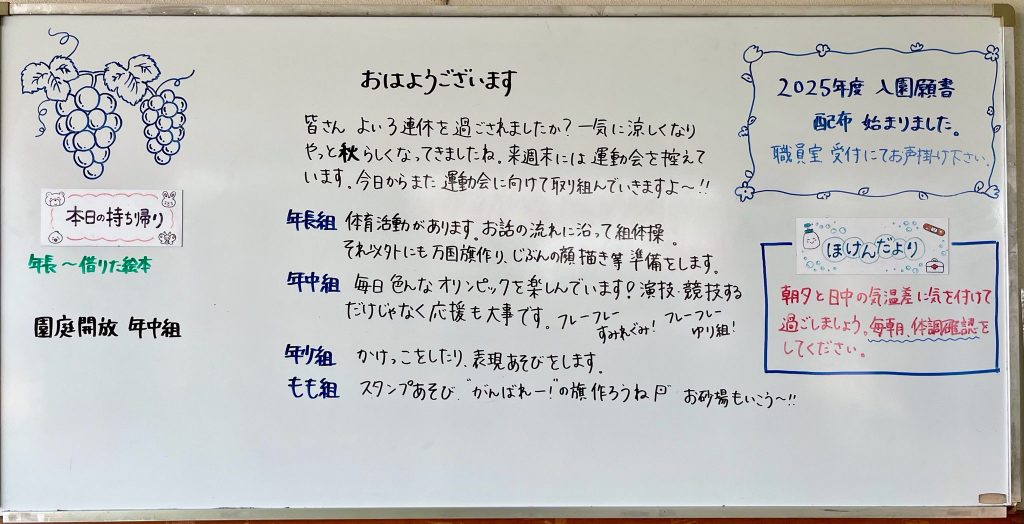 おはようございます
皆さん よい3連休を過ごされましたか？一気に涼しくなり
やっと秋らしくなってきましたね。来週末には運動会を控えて
います。今日からまた運動会に向けて取り組んでいきますよ～!!
年長組 体育活動があります。お話の流れに沿って組体操。
それ以外にも万国旗作り、じぶんの顔描き等準備をします。
年中組 毎日色んなオリンピックを楽しんでいます！演技・競技する
だけじゃなく応援も大事です。フレーフレー すみれぐみ！ フレーフレー ゆり組！
年少組 かけっこをしたり、表現あそびをします。
もも組 スタンプあそび、"がんばれー！"の旗作ろうね お砂場もいこう～!!
本日の持ち帰り
年長～借りた絵本
園庭開放 年中組
2025年度 入園願書
配布 始まりました。
職員室 受付にてお声掛け下さい。
ほけんだより
朝夕と日中の気温差に気を付けて
過ごしましょう。毎朝、体調確認を
してください。